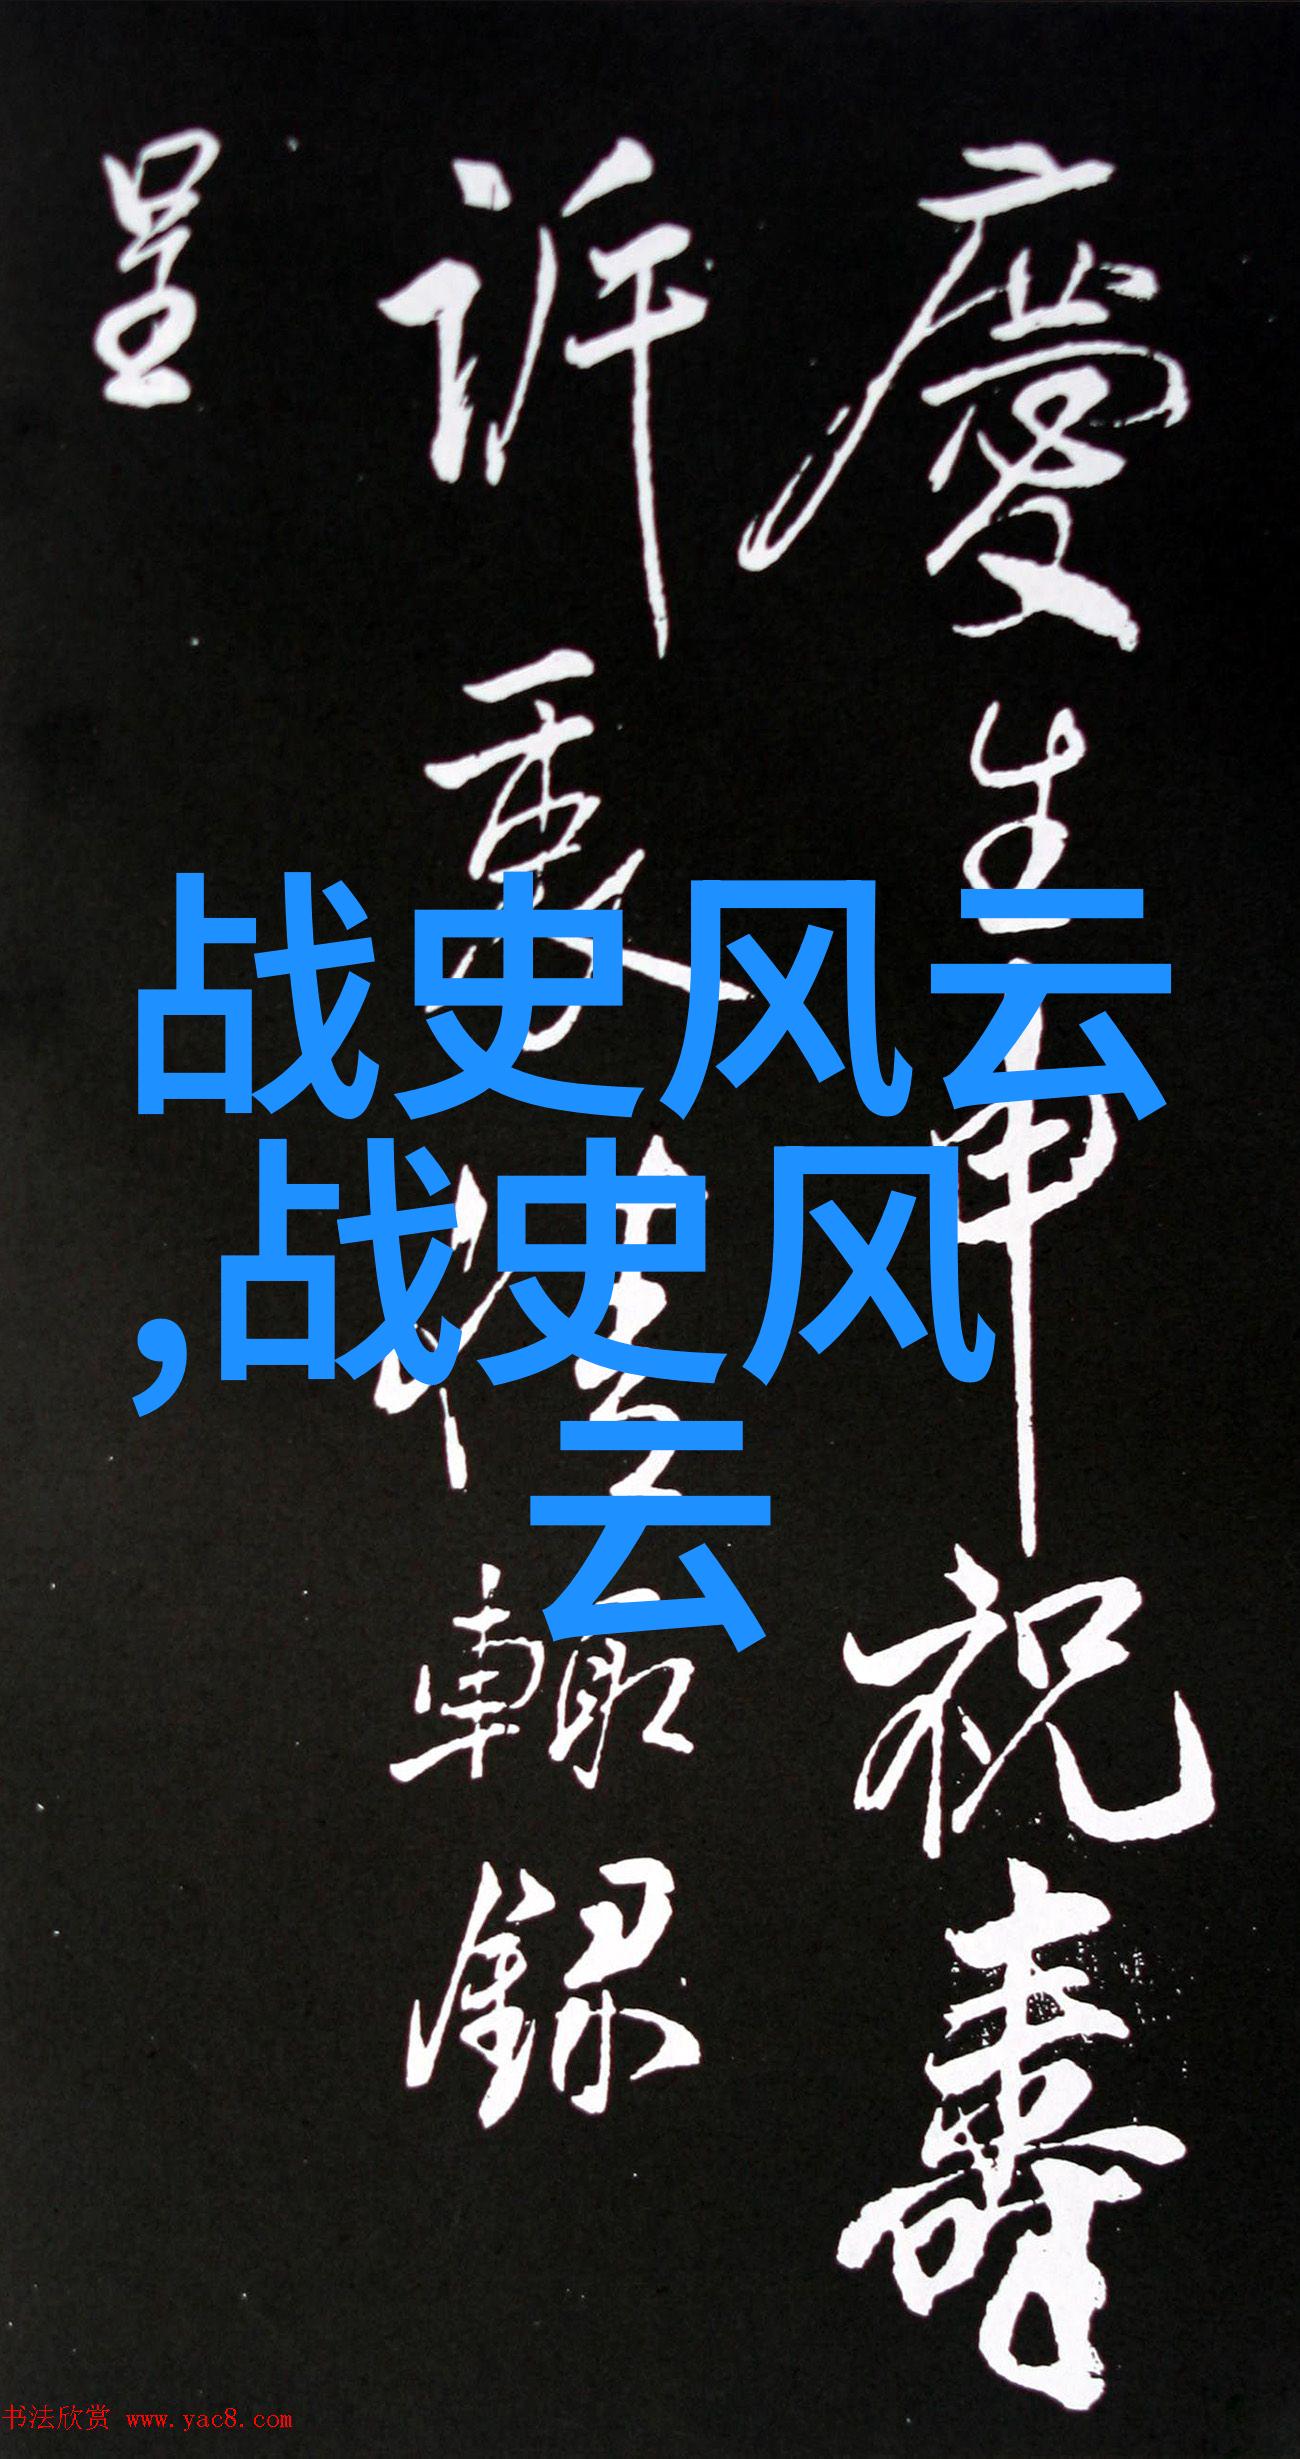 慶生申祝壽
訴衷情輒錄
呈
战史风云
,战史风
云
书法欣赏 www.yac8.com